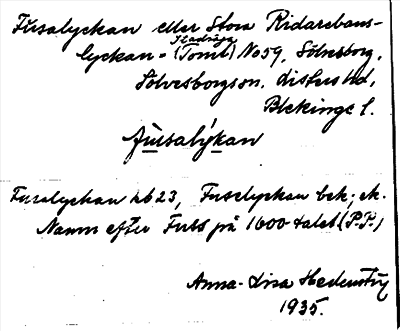 Fursalyckan eller Stora Ridarebans-
lyckan - (Tomt) No 59, Sölvesborg,
Sölvesborgs sn, Listers hd,
Blekinge l.
fu̲rsalýkan
Fursalyckan kb 23, Fuselyckan bek; ek.
Namn efter Furs på 1600-talet (P.P.)
Anna-Lisa Hedenstig
1935.